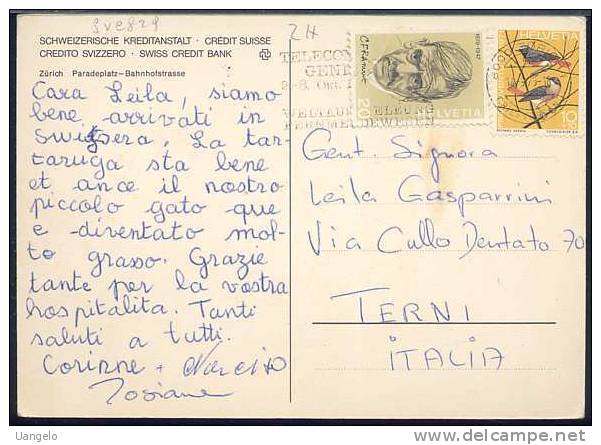 sve829
ZH
SCHWEIZERISCHE KREDITANSTALT · CRÉDIT SUISSE
CREDITO SVIZZERO · SWISS CREDIT BANK
Zürich Paradeplatz–Bahnhofstrasse
Cara Leila, siamo
bene arrivati in
Svizzera. La tar-
taruga sta bene
et ance il nostro
piccolo gato que
e diventato mol-
to grasso. Grazie
tante per la vostra
hospitalita. Tanti
saluti a tutti.
Corinne +
Josiane
TELECO
GEN
C.F. Ramuz
1878-1947
20
HELVETIA
HELVETIA
10
Gent. Signora
Leila Gasparrini
Via Cullo Dentato 70
TERNI
ITALIA
Uangelo
delcampe.net